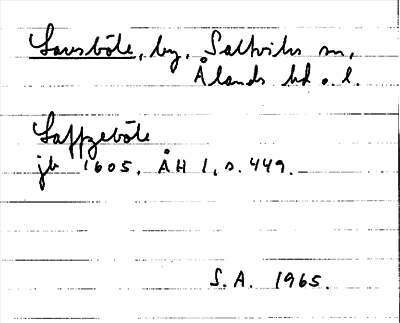 Lavsböle, by, Saltviks sn,
Ålands hd o. l.
Laffzeböle
jb 1605. ÅH 1, s. 449.
S.A. 1965.